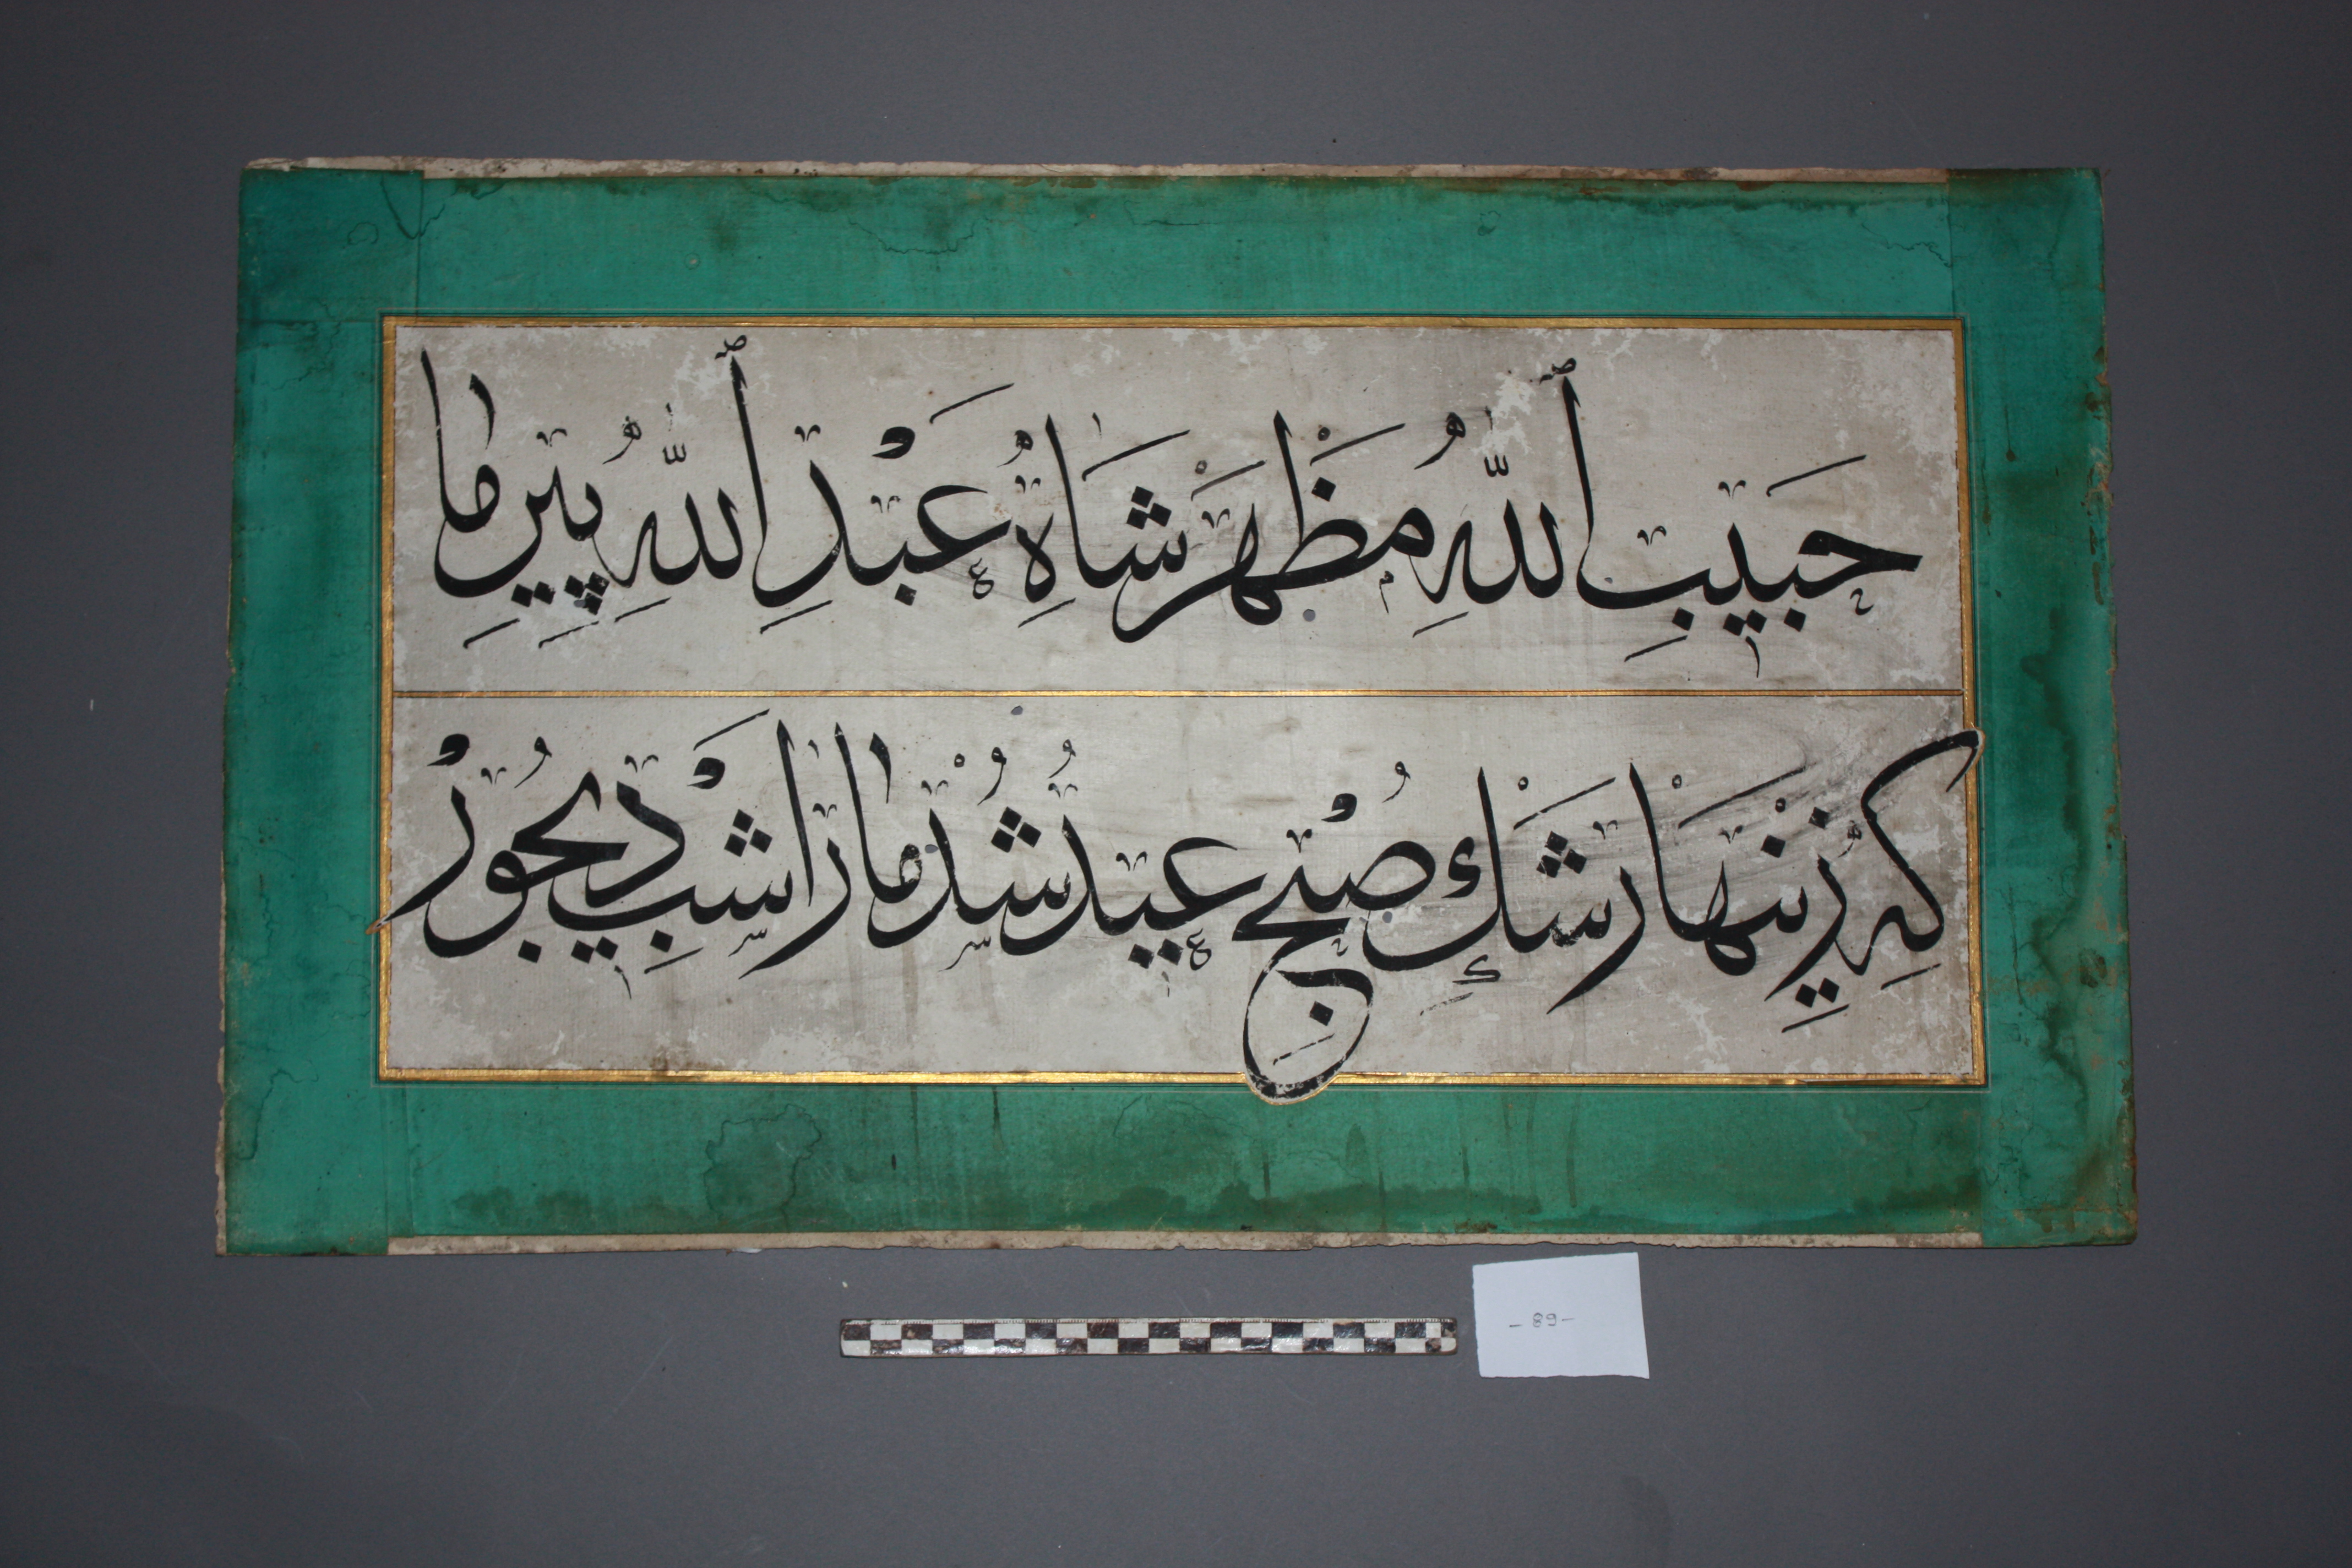 حَبيبِ ٱللّٰهِ مَظْهَرْ شَاهِ عَبْدِ ٱللّٰهِ پِيرِ مَا
كِهِ زِينْهَا رَشْكِ صُبْحِ عِيدْ شُدْ مَارَا شَبِ دَيْجُورْ
- 89 -